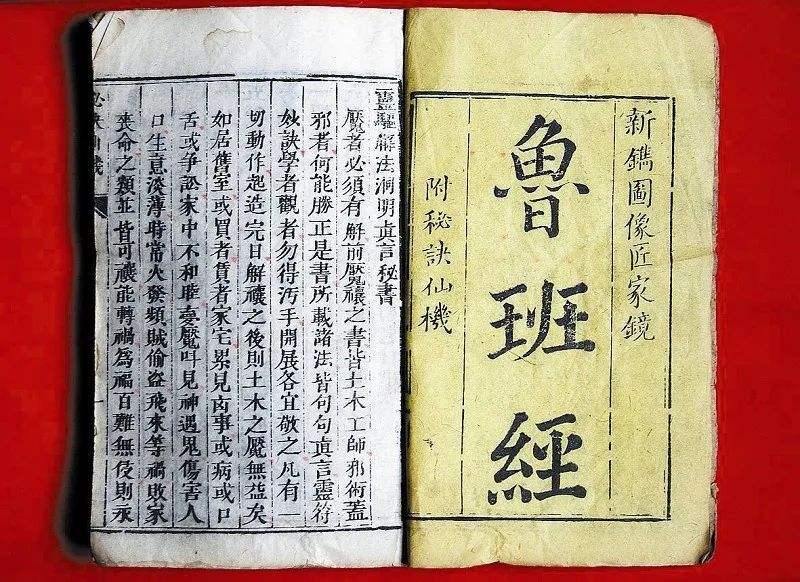 新鐫圖像匠家鏡
魯班經
附秘訣仙機
靈驅解法洞明眞言秘書
魘者必須有解前魘禳之書皆土木工師邪術蓋
邪者何能勝正是書所載諸法皆句句眞言靈符
妙訣學者觀者勿得汚手開展各宜敬之凡有一
切動作起造完日解禳之後則土木之魘無益矣
如居舊室或買者賃者家宅累見㐫事或病或口
舌或爭訟家中不和魘叫見神遇鬼傷害人
口生意淡薄時常火發頻賊偷盜飛來等禍敗家
喪命之類並皆可禳能轉禍爲福百難無侵則永